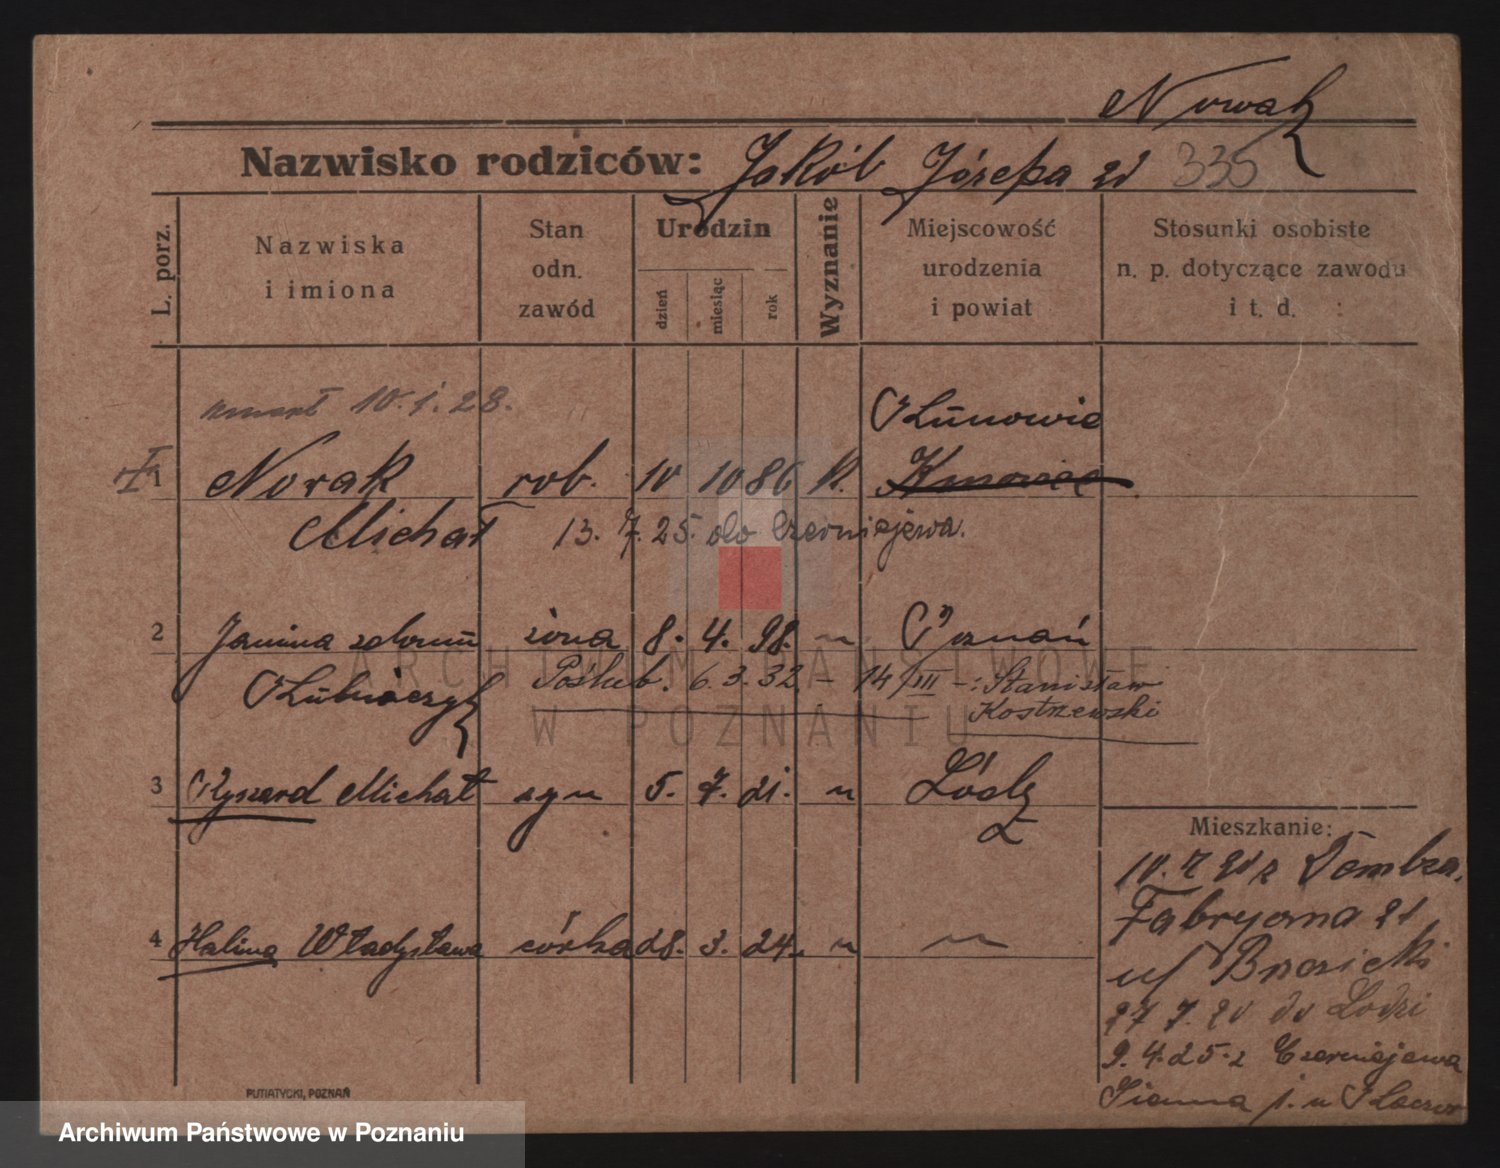 Nowak
Nazwisko rodziców: Jakób Józefa zd 335
L. porz.
Nazwiska i imiona
Stan odn. zawód
Urodzin
dzień miesiąc rok
Wyznanie
Miejscowość urodzenia i powiat
Stosunki osobiste n. p. dotyczące zawodu i t. d. :
zmarł 10.1.28.
1 Nowak rob. 10 10 86 kt.
Michał 13. 7. 25. do Czerniejewa.
2 Janina żona 8. 4. 98. " Poznań
Poślub. 6. 3. 32 - 14/III -: Stanisław
Kostrzewski
3 Ryszard Michał syn 5. 7. 21. " Łódź
4 Halina Władysława córka 28. 3. 24. " "
Mieszkanie:
10. 7 20 z
Fabryczna 21
u/
27 7. 20 do Łodzi
9. 4. 25. z Czerniejewa
PUTIATYCKI, POZNAŃ
ARCHIWUM PAŃSTWOWE
W POZNANIU
Archiwum Państwowe w Poznaniu